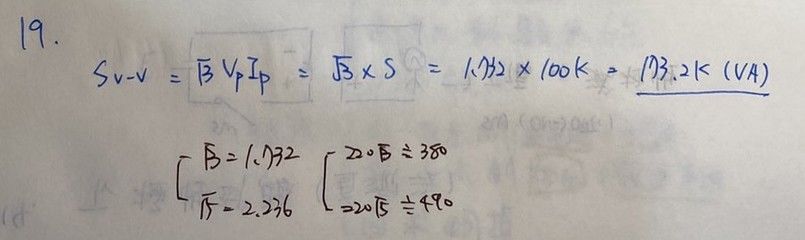 19.
S v-v = √3 VpIp = √3 × S = 1.732 × 100K = 173.2K (VA)
√3 = 1.732 220√3 ≒ 380
√5 = 2.236 220√5 ≒ 490